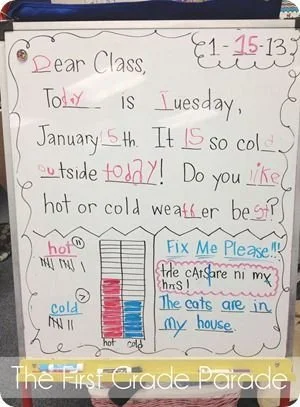 1-15-13
Dear Class,
Today is Tuesday,
January 15th. It is so cold
outside today! Do you like
hot or cold weather best?
hot 11
cold 7
hot cold
Fix Me Please!!!
the cAts are ni mx
hns!
The cats are in
my house.
The First Grade Parade